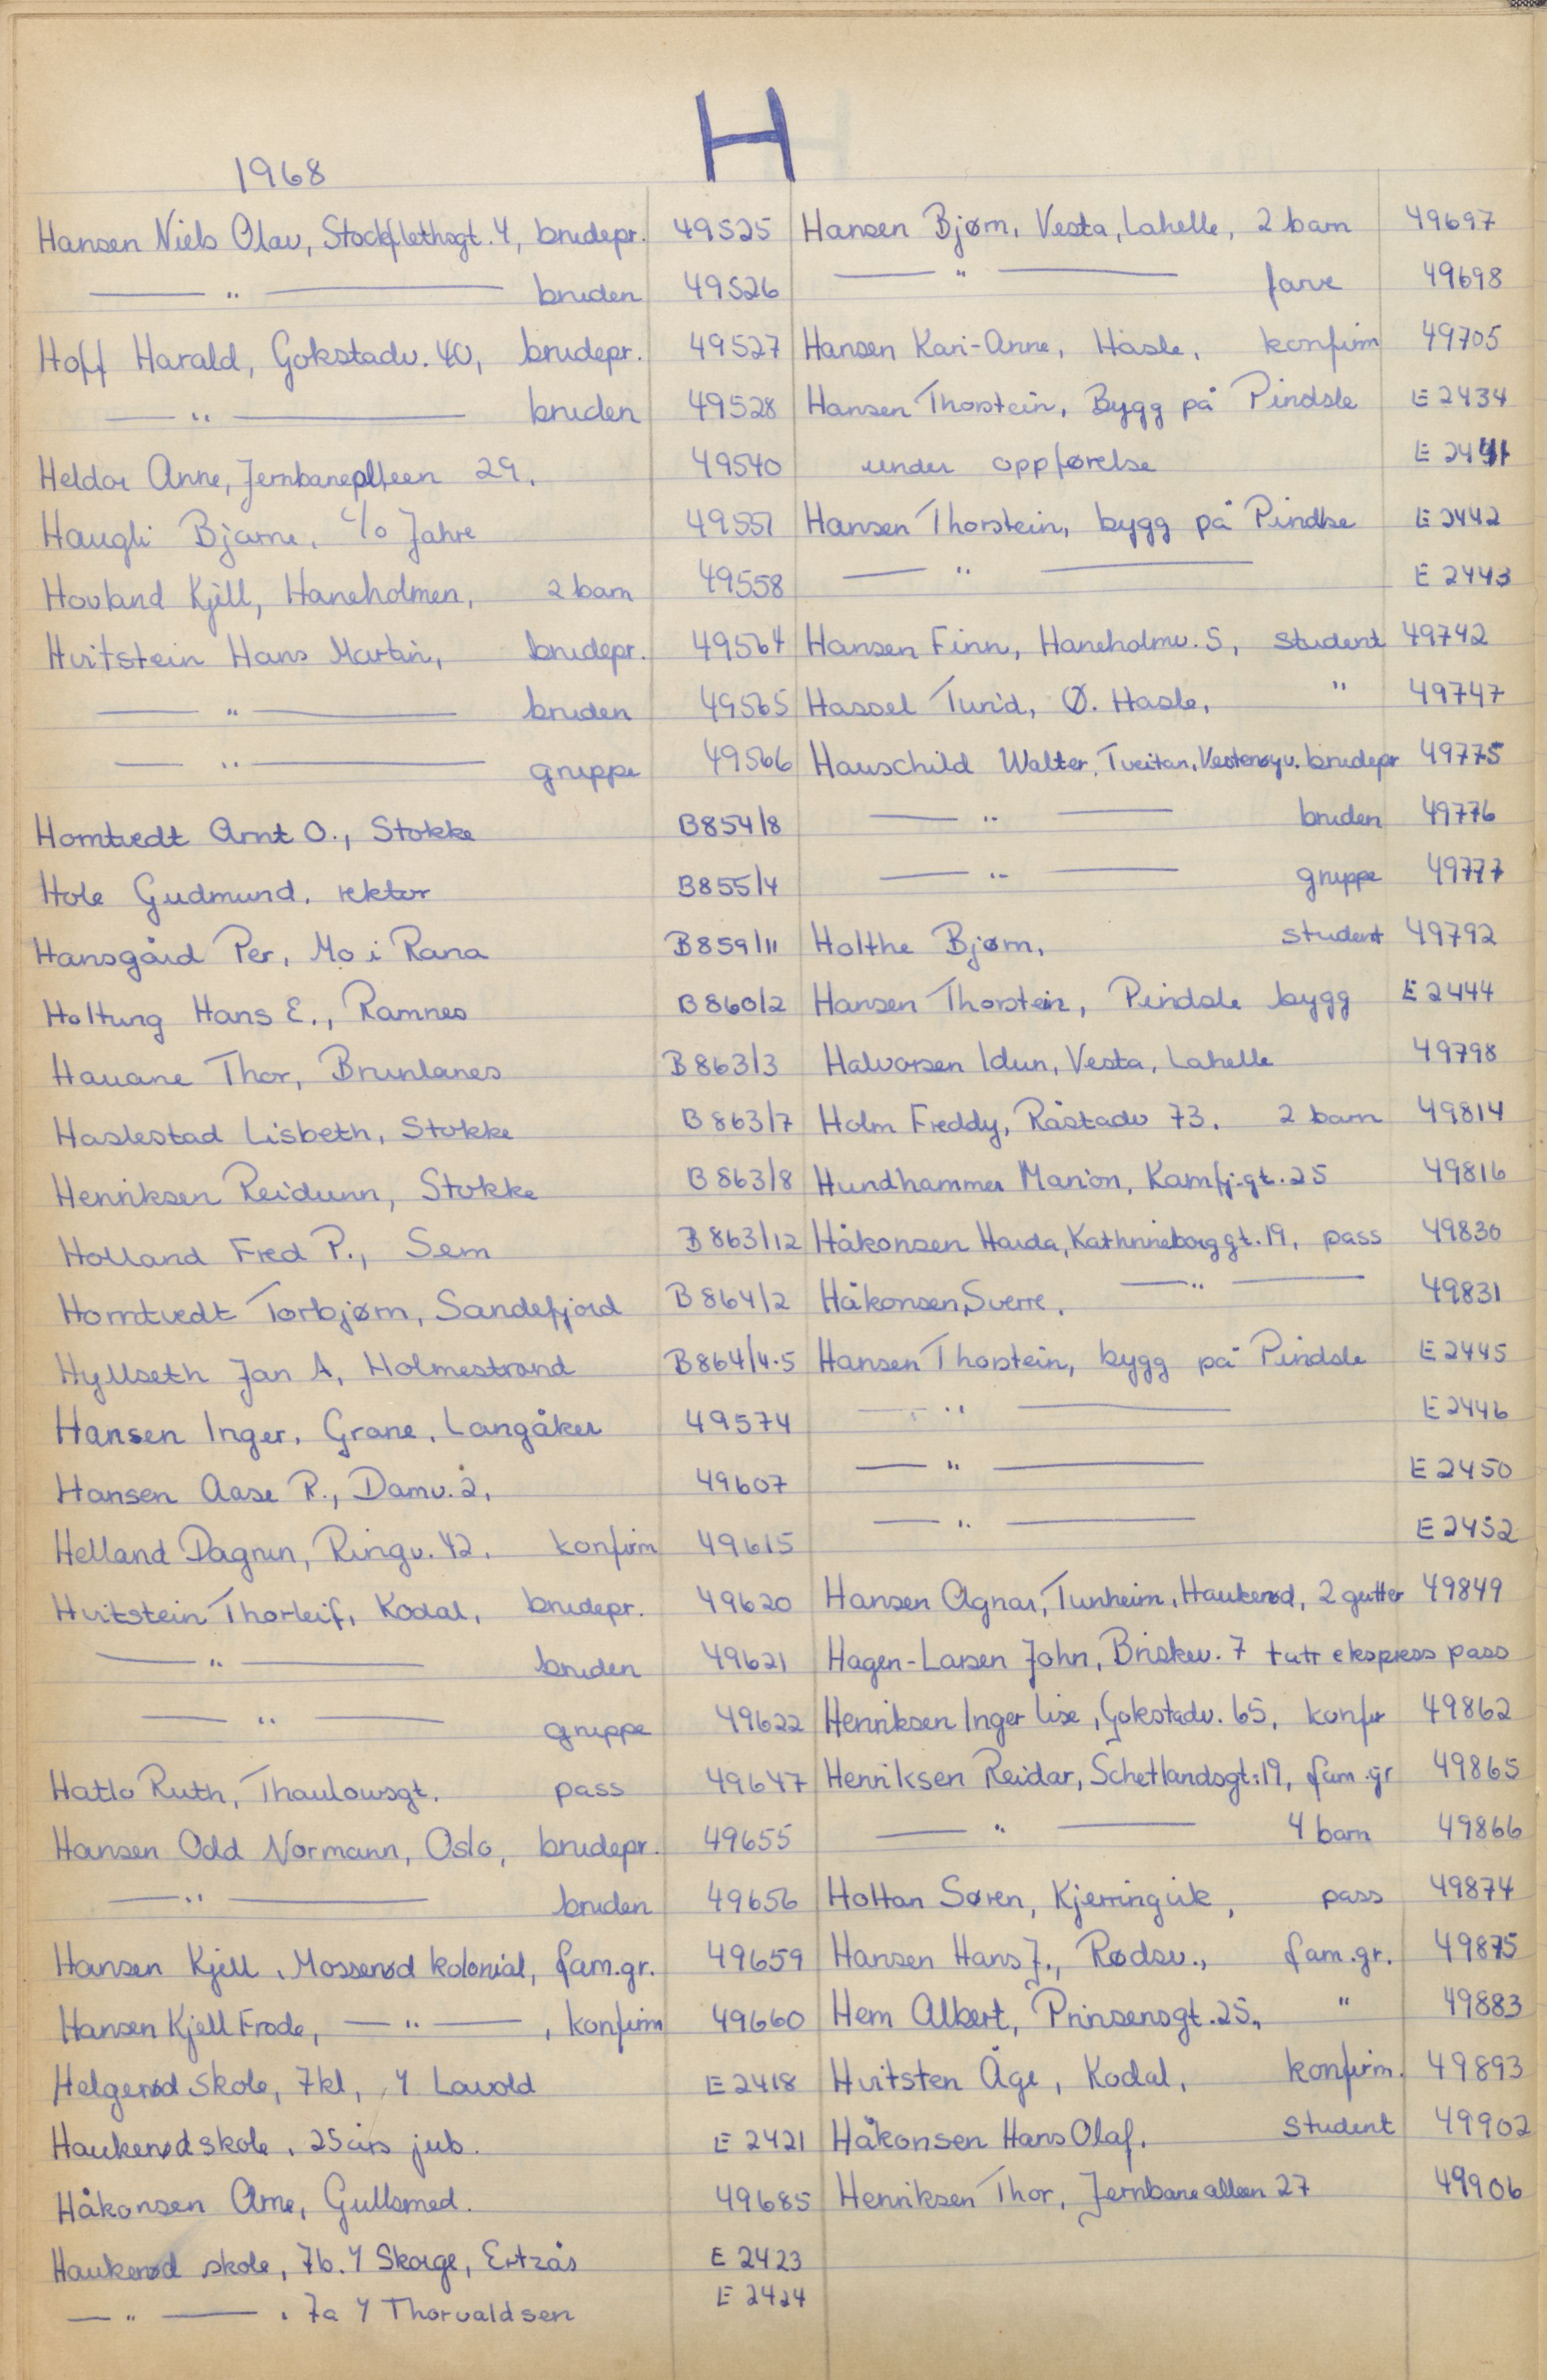 H
1968
Hansen Niels Olav, Stockflethsgt. 4, brudepr. 49525
— " — bruden 49526
Hoff Harald, Gokstadv. 40, brudepr. 49527
— " — bruden 49528
Heldor Anne, Jernbanealleen 29. 49540
Haugli Bjarne, c/o Jahre 49557
Hovland Kjell, Haneholmen, 2 barn 49558
Hvitstein Hans Martin, brudepr. 49564
— " — bruden 49565
— " — gruppe 49566
Homtvedt Arnt O., Stokke B854/8
Hole Gudmund, rektor B855/4
Hansgård Per, Mo i Rana B859/11
Holtung Hans E., Ramnes B860/2
Hauane Thor, Brunlanes B863/3
Haslestad Lisbeth, Stokke B863/7
Henriksen Reidunn, Stokke B863/8
Holland Fred P., Sem B863/12
Homtvedt Torbjørn, Sandefjord B864/2
Hyllseth Jan A, Holmestrand B864/4.5
Hansen Inger, Grane, Langåker 49574
Hansen Aase R., Damv. 2. 49607
Helland Dagrun, Ringv. 42. konfirm 49615
Hvitstein Thorleif, Kodal, brudepr. 49620
— " — bruden 49621
— " — gruppe 49622
Hatlo Ruth, Thaulowsgt. pass 49647
Hansen Odd Normann, Oslo, brudepr. 49655
— " — bruden 49656
Hansen Kjell, Mosserød kolonial, fam.gr. 49659
Hansen Kjell Frode, — " —, konfirm 49660
Helgerød skole, 7kl, Y Lavold E 2418
Haukerød skole, 25 års jub. E 2421
Håkonsen Arne, Gullsmed. 49685
Haukerød skole, 7b. Y Skorge, Ertzås E 2423
— " — . 7a Y Thorvaldsen E 2424
Hansen Bjørn, Vesta, Lahelle, 2 barn 49697
— " — farve 49698
Hansen Kari-Anne, Hasle, konfirm 49705
Hansen Thorstein, Bygg på Pindsle E 2434
under oppførelse E 2441
Hansen Thorstein, bygg på Pindlse E 2442
— " — E 2443
Hansen Finn, Haneholmv. 5, student 49742
Hassel Turid, Ø. Hasle, " 49747
Hauschild Walter, Tveitan, Vestenøyv. brudepr 49775
— " — bruden 49776
— " — gruppe 49777
Holthe Bjørn, student 49792
Hansen Thorstein, Pindsle bygg E 2444
Halvorsen Idun, Vesta, Lahelle 49798
Holm Freddy, Råstadv 73. 2 barn 49814
Hundhammer Marion, Kamfj.gt. 25 49816
Håkonsen Harda, Kathrineborggt. 19, pass 49830
Håkonsen, Sverre, — " — 49831
Hansen Thorstein, bygg på Pindsle E 2445
— " — E 2446
— " — E 2450
— " — E 2452
Hansen Agnar, Tunheim, Haukerød, 2 gutter 49849
Hagen-Larsen John, Briskev. 7 tatt ekspress pass
Henriksen Inger Lise, Gokstadv. 65, konfir 49862
Henriksen Reidar, Schetlandsgt: 19, fam.gr 49865
— " — 4 barn 49866
Holtan Søren, Kjerringvik, pass 49874
Hansen Hans J., Rødsv., fam.gr. 49875
Hem Albert, Prinsensgt. 25, " 49883
Hvitsten Åge, Kodal, konfirm. 49893
Håkonsen Hans Olaf, student 49902
Henriksen Thor, Jernbanealleen 27 49906